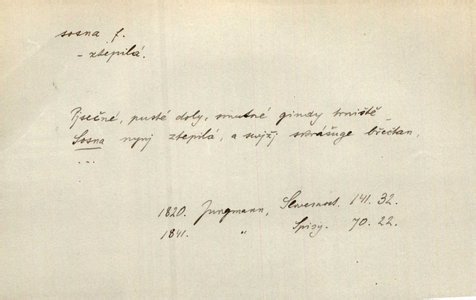 sosna f.
- ztepilá.
Pjsečné, pusté doly, smutné gindy trniště
Sosna nynj ztepilá, a swěžj okrášuge břečtan,
...
1820. Jungmann, Slowesnost. 141. 32.
1841. " Spisy. 70. 22.